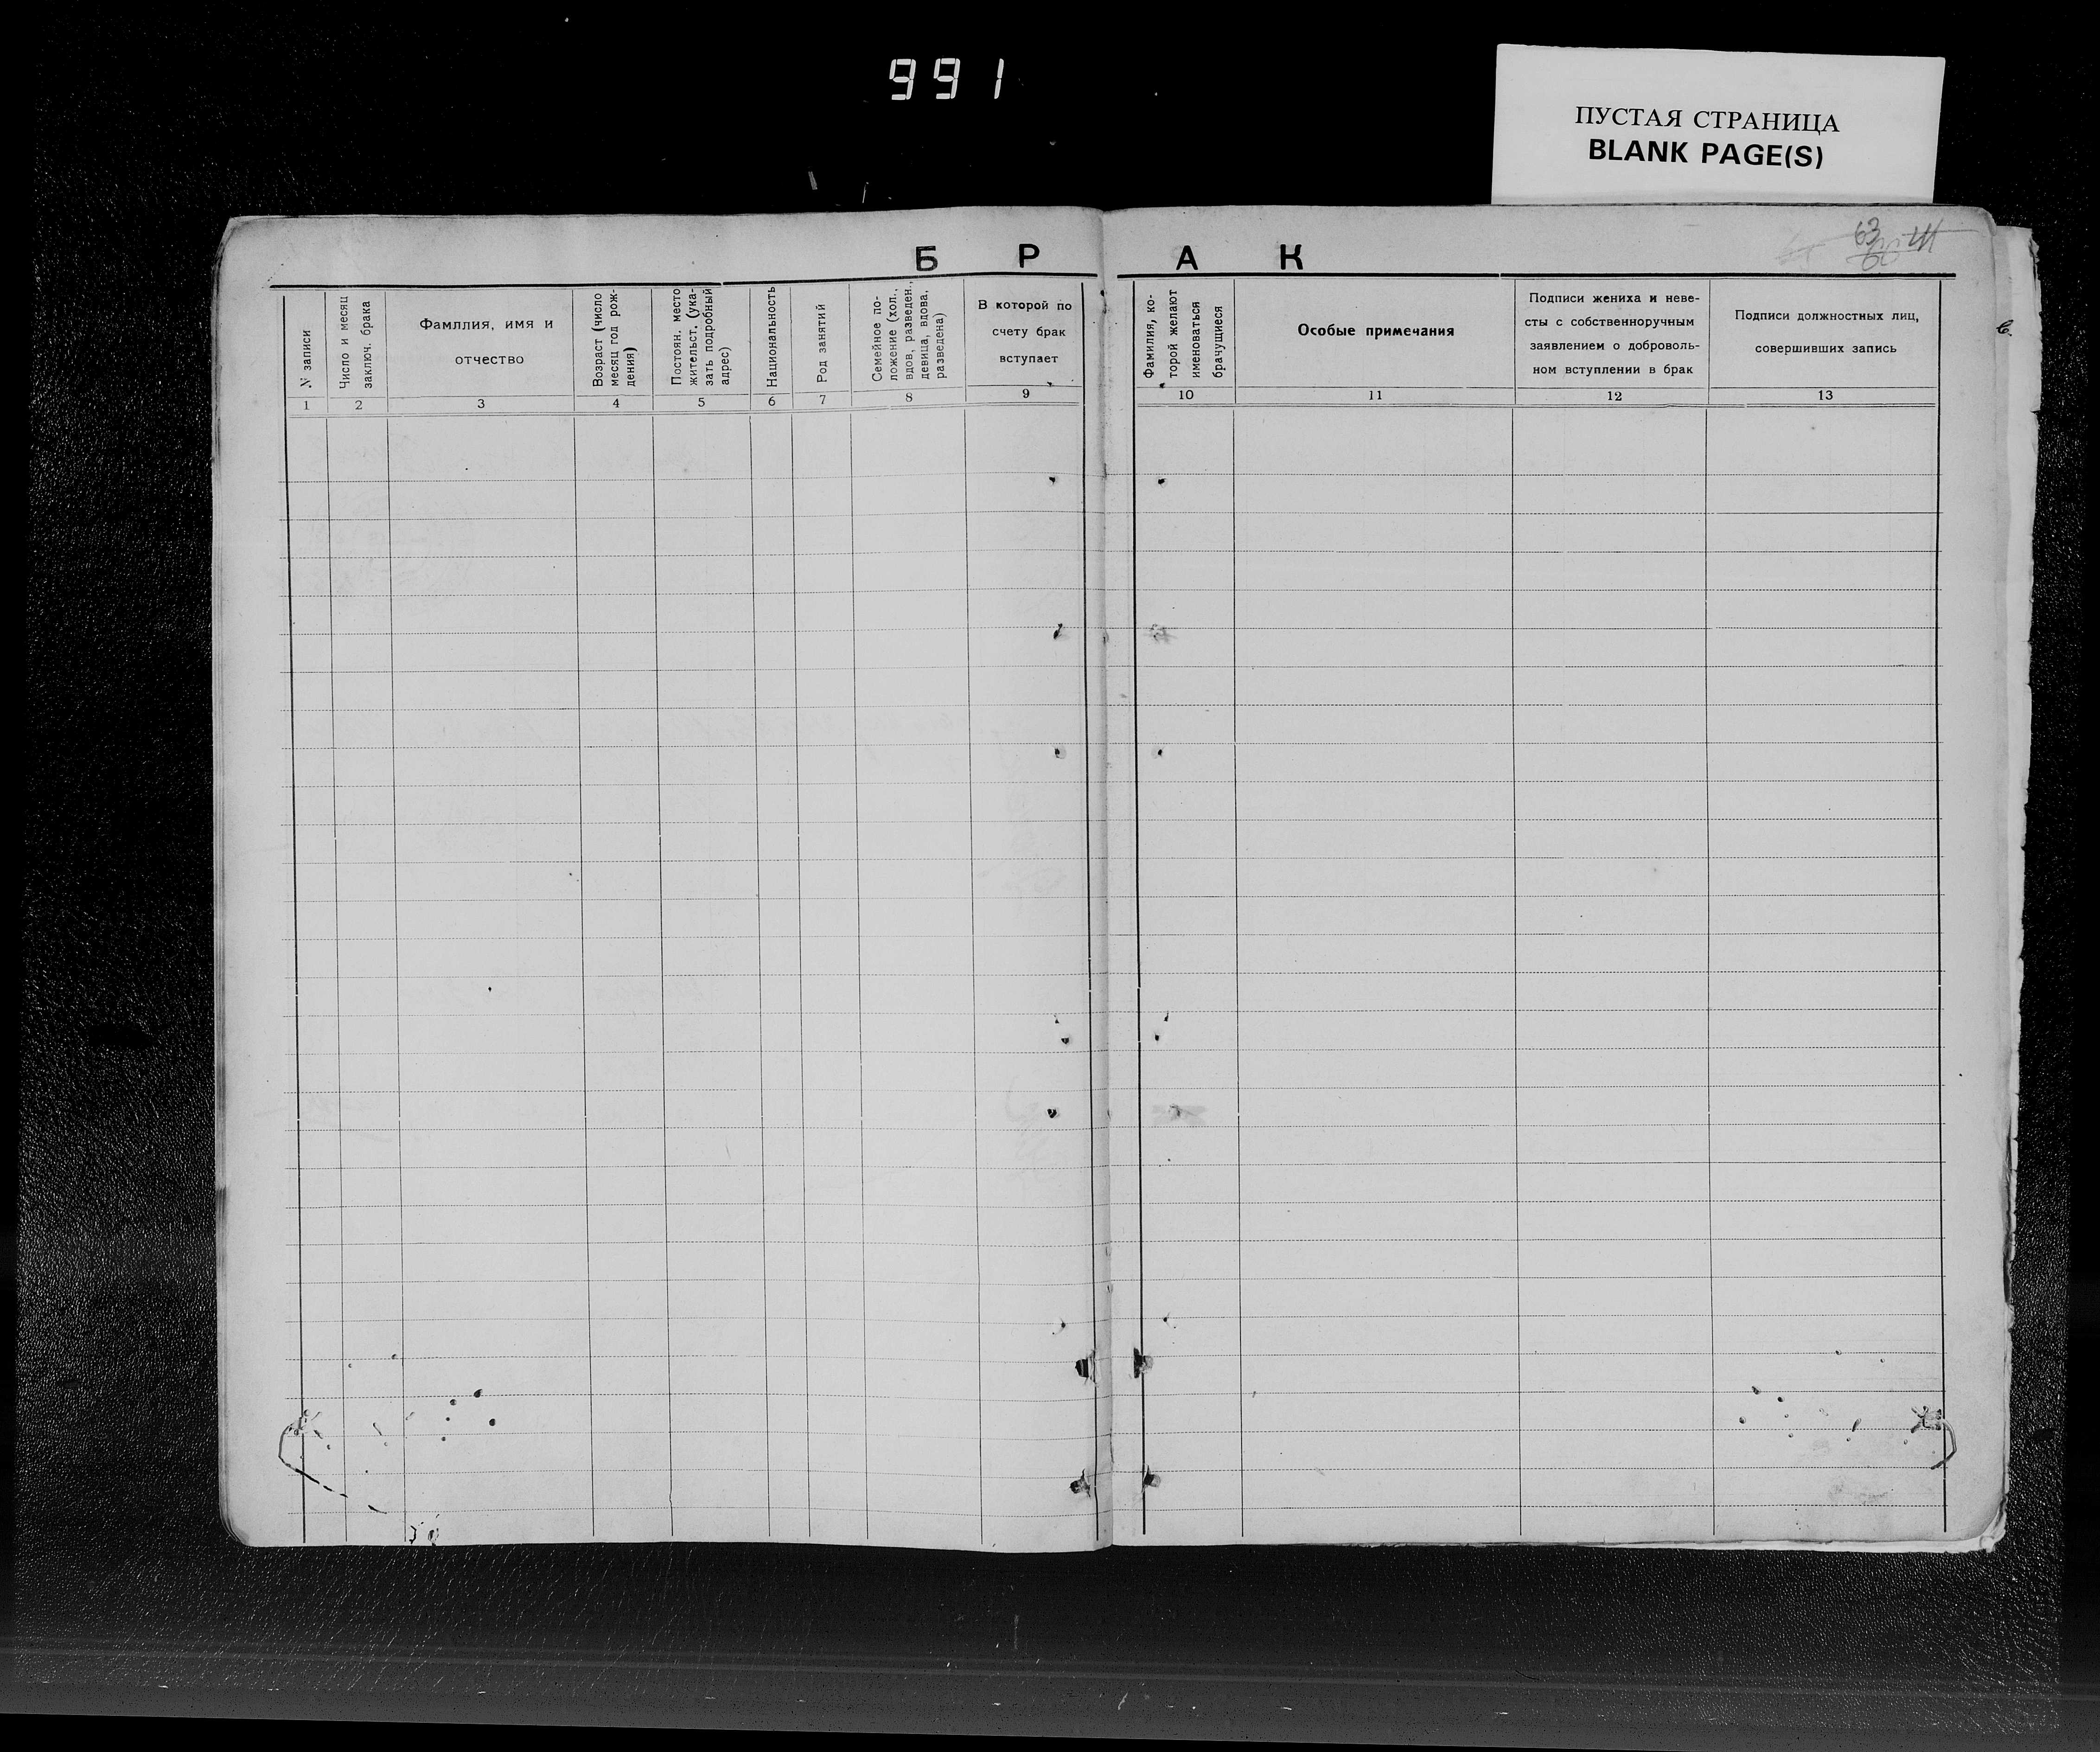 991
ПУСТАЯ СТРАНИЦА
BLANK PAGE(S)
63
Б Р А К
№ записи
Число и месяц
заключ. брака
Фамллия, имя и
отчество
Возраст (число
месяц год рож-
дения)
Постоян. место
жительст. (ука-
зать подробный
адрес)
Национальность
Род занятий
Семейное по-
ложение (хол.,
вдов, разведен.,
девица, вдова,
разведена)
В которой по
счету брак
вступает
Фамилия, ко-
торой желают
именоваться
брачущиеся
Особые примечания
Подписи жениха и неве-
сты с собственноручным
заявлением о доброволь-
ном вступлении в брак
Подписи должностных лиц,
совершивших запись
1 2 3 4 5 6 7 8 9 10 11 12 13